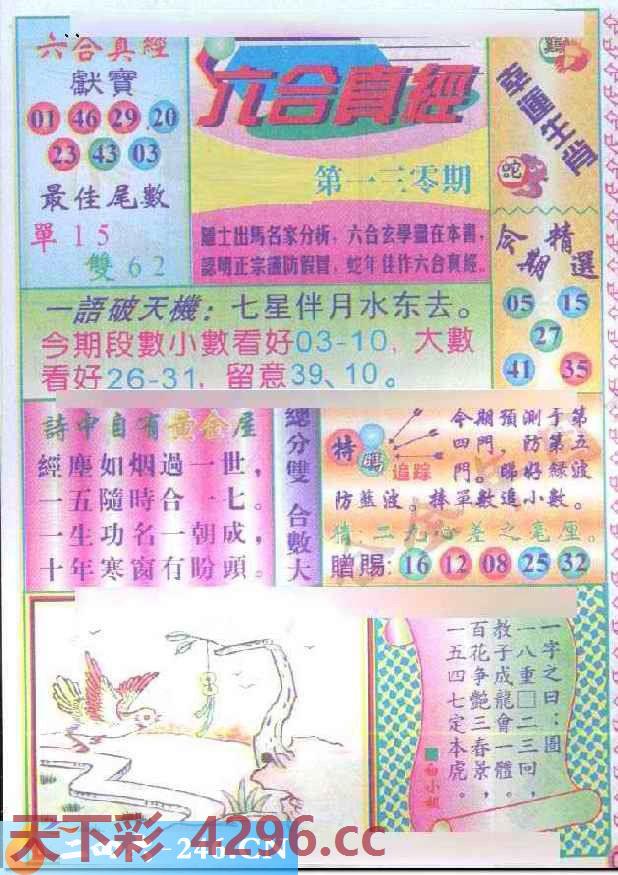 六合真經
獻寶
01 46 29 20
23 43 03
最佳尾數
單15
雙62
六合真經
第一三零期
隨士出馬名家分析，六合玄學盡在本書，
認明正宗謹防假冒，蛇年佳作六合真經。
鷄
蛇
今期精選
05 15
27
41 35
一語破天機：七星伴月水东去。
今期段數小數看好03-10，大數
看好26-31，留意39、10。
詩中自有黃金屋
經塵如烟過一世，
一五隨時合一七。
一生功名一朝成，
十年寒窗有盼頭。
總分雙 合數大
特碼追踪
今期預測于第
四門，防第五
門。睇好綠波
防藍波。捧單數追小數。
猜：二九心差之毫厘。
贈賜：16 12 08 25 32
一字之曰：圖
一八重□二三回，
教子成龍會一體。
百花争艷三春景，
一五四七定本虎。
白小姐
天下彩 4296.cc
246.CN